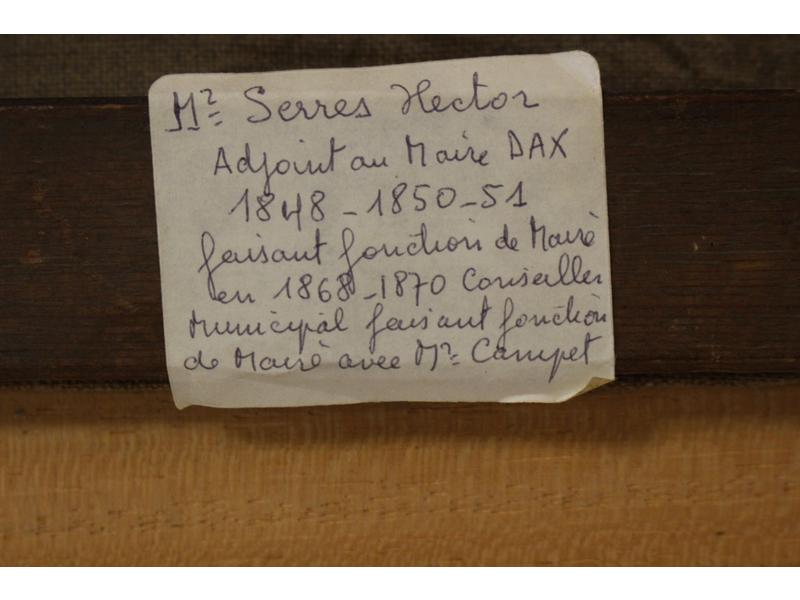 Mr Serres Hector
Adjoint au Maire DAX
1848 - 1850 - 51
faisant fonction de Mairé
en 1868 - 1870 Conseiller
Municipal faisant fonction
de Mairé avec Mr Campet